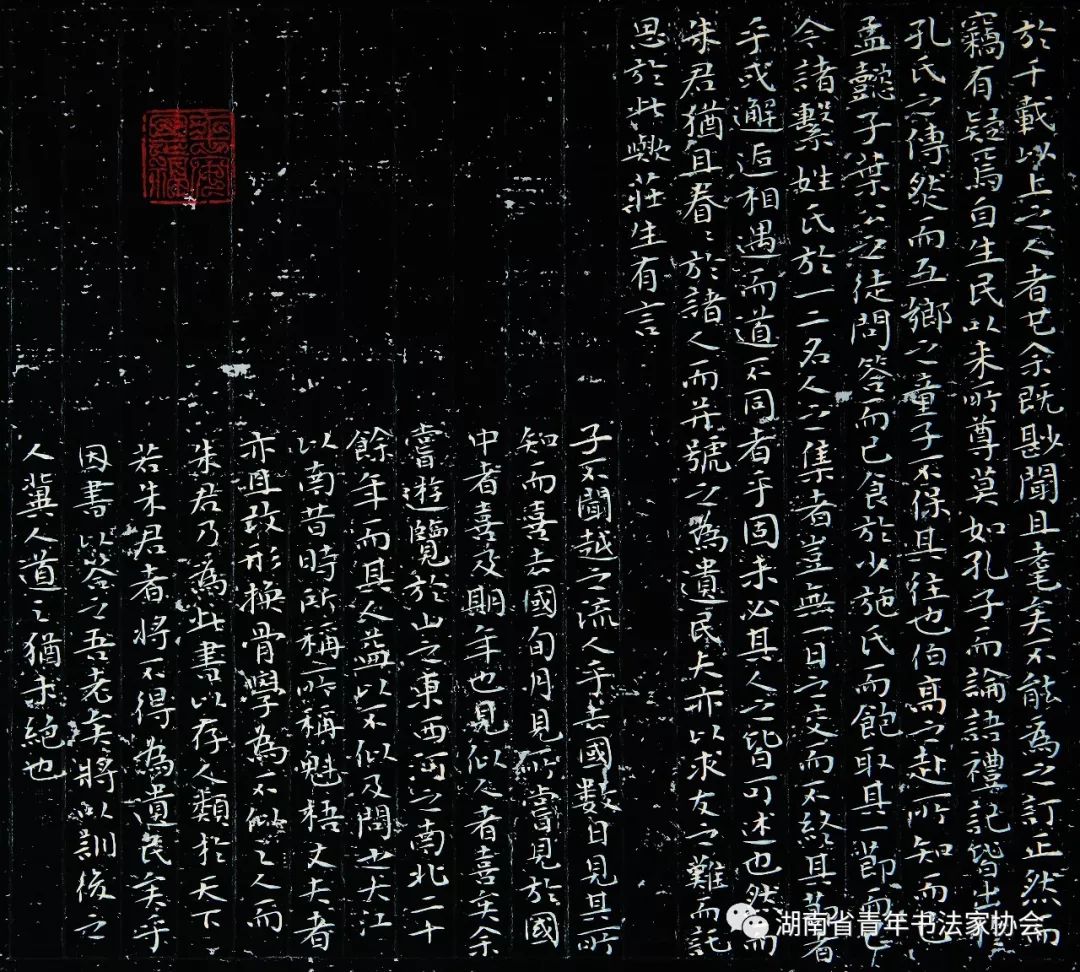 於千載以上之人者也余既尠聞且耄矣不能為之訂正然而
竊有疑焉自生民以来所尊莫如孔子而論語禮記皆出於
孔氏之傳然而互鄉之童子不保其往也伯高之赴所知而已
孟懿子葉公之徒問答而已食於少施氏而飽取其一節而已
今諸繫姓氏於一二名人之集者豈無一日之交而不終其節者
乎或邂逅相遇而道不同者乎固未必其人之皆可述也然而
朱君猶且眷〻於諸人而并號之為遺民夫亦以求友之難而託
思於此歟莊生有言
子不聞越之流人乎去國數日見其所
知而喜去國旬月見所嘗見於國
中者喜及期年也見似人者喜矣余
嘗遊覽於山之東西河之南北二十
餘年而其人益以不似及問之大江
以南昔時所稱所稱魁梧丈夫者
亦且改形換骨學為不似之人而
朱君乃為此書以存人類於天下
若朱君者將不得為遺民矣乎
因書以答之吾老矣將以訓後之
人冀人道之猶未絕也
湖南省青年书法家协会